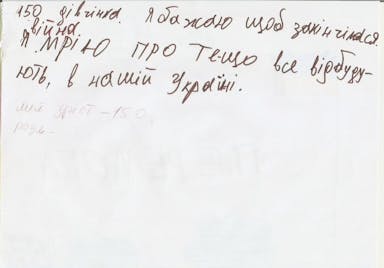 150 дівчінка. Я бажаю щоб закінчілася
війна.
Я МРІЮ ПРО Те що все відбуду-
ють, в нашій Україні.
зріст - 150